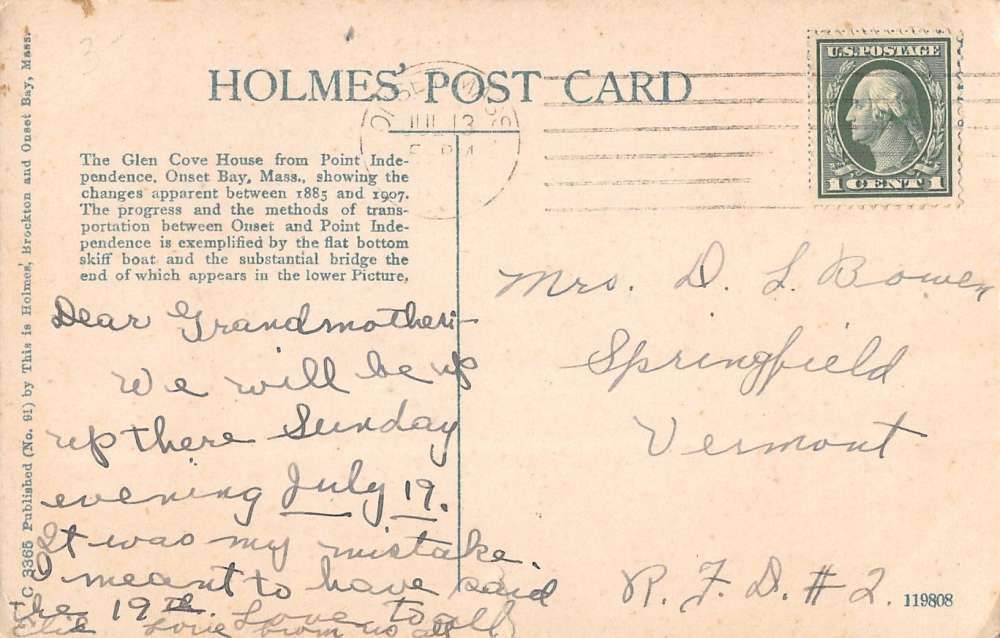 HOLMES' POST CARD
U.S. POSTAGE
1 CENT 1
ONSET MASS
JUL 13
The Glen Cove House from Point Inde-
pendence, Onset Bay, Mass., showing the
changes apparent between 1885 and 1907.
The progress and the methods of trans-
portation between Onset and Point Inde-
pendence is exemplified by the flat bottom
skiff boat and the substantial bridge the
end of which appears in the lower Picture,
C 3365 Published (No. 91) by This is Holmes', Brockton and Onset Bay, Mass.
Dear Grandmother:-
We will be up
up there Sunday
evening July 19.
It was my mistake.
I meant to have said
the 19th. Love to all
Love from us all
Mrs. D. L. Bowen
Springfield
Vermont
R. F. D. # 2.
119808